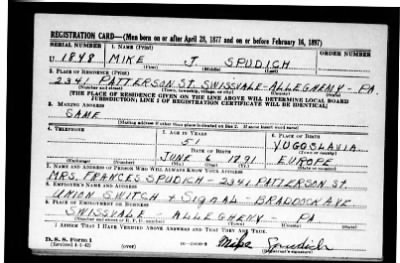 REGISTRATION CARD—(Men born on or after April 28, 1877 and on or before February 16, 1897)
SERIAL NUMBER 1. NAME (Print) ORDER NUMBER
U 1848 MIKE J. SPUDICH
(First) (Middle) (Last)
2. PLACE OF RESIDENCE (Print)
2341 PATTERSON ST. SWISSVALE - ALLEGHENY - PA.
(Number and street) (Town, township, village, or city) (County) (State)
[THE PLACE OF RESIDENCE GIVEN ON THE LINE ABOVE WILL DETERMINE LOCAL BOARD
JURISDICTION; LINE 2 OF REGISTRATION CERTIFICATE WILL BE IDENTICAL]
3. MAILING ADDRESS
SAME
(Mailing address if other than place indicated on line 2. If same insert word same)
4. TELEPHONE 5. AGE IN YEARS 6. PLACE OF BIRTH
51 YUGOSLAVIA
DATE OF BIRTH (Town or county)
JUNE 6 1891 EUROPE
(Exchange) (Number) (Mo.) (Day) (Yr.) (State or country)
7. NAME AND ADDRESS OF PERSON WHO WILL ALWAYS KNOW YOUR ADDRESS
MRS. FRANCES SPUDICH - 2341 PATTERSON ST.
8. EMPLOYER'S NAME AND ADDRESS
UNION SWITCH & SIGNAL - BRADDOCK AVE
9. PLACE OF EMPLOYMENT OR BUSINESS
SWISSVALE - ALLEGHENY - PA
(Number and street or R. F. D. number) (Town) (County) (State)
I AFFIRM THAT I HAVE VERIFIED ABOVE ANSWERS AND THAT THEY ARE TRUE.
D. S. S. Form 1
(Revised 4-1-42) (over) Mike Spudich